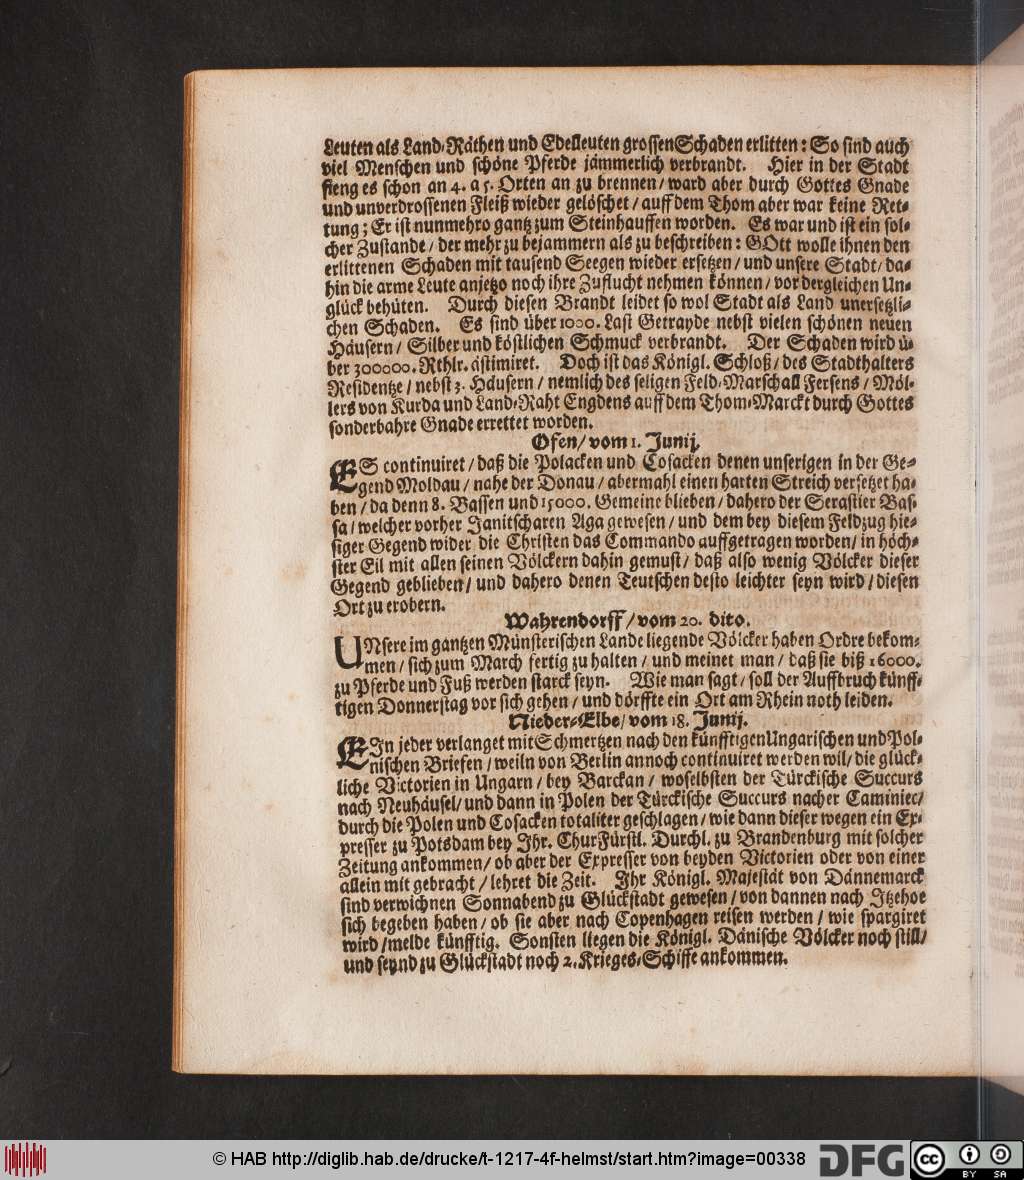 Leuten als Land-Räthen und Edelleuten grossen Schaden erlitten: So sind auch
viel Menschen und schöne Pferde jämmerlich verbrandt. Hier in der Stadt
fieng es schon an 4. a 5. Orten an zu brennen/ ward aber durch Gottes Gnade
und unverdrossenen Fleiß wieder gelöschet/ auff dem Thom aber war keine Ret-
tung; Er ist nunmehro gantz zum Steinhauffen worden. Es war und ist ein sol-
cher Zustande/ der mehr zu bejammern als zu beschreiben: GOtt wolle ihnen den
erlittenen Schaden mit tausend Seegen wieder ersetzen/ und unsere Stadt/ da-
hin die arme Leute anjetzo noch ihre Zuflucht nehmen können/ vor dergleichen Un-
glück behüten. Durch diesen Brandt leidet so wol Stadt als Land unersetzli-
chen Schaden. Es sind über 1000. Last Getrayde nebst vielen schönen neuen
Häusern/ Silber und köstlichen Schmuck verbrandt. Der Schaden wird ü-
ber 300000. Rthlr. ästimiret. Doch ist das Königl. Schloß/ des Stadthalters
Residentze/ nebst 3. Häusern/ nemlich des seligen Feld-Marschall Fersens/ Möl-
lers von Kurda und Land-Raht Engdens auff dem Thom-Marckt durch Gottes
sonderbahre Gnade errettet worden.
Ofen/ vom 1. Junij.
ES continuiret/ daß die Polacken und Cosacken denen unserigen in der Ge-
gend Moldau/ nahe der Donau/ abermahl einen harten Streich versetzet ha-
ben/ da denn 8. Bassen und 15000. Gemeine blieben/ dahero der Serastier Bas-
sa/ welcher vorher Janitscharen Aga gewesen/ und dem bey diesem Feldzug hie-
siger Gegend wider die Christen das Commando auffgetragen worden/ in höch-
ster Eil mit allen seinen Völckern dahin gemust/ daß also wenig Völcker dieser
Gegend geblieben/ und dahero denen Teutschen desto leichter seyn wird/ diesen
Ort zu erobern.
Wahrendorff/ vom 20. dito.
UNsere im gantzen Münsterischen Lande liegende Völcker haben Ordre bekom-
men/ sich zum March fertig zu halten/ und meinet man/ daß sie biß 16000.
zu Pferde und Fuß werden starck seyn. Wie man sagt/ soll der Auffbruch künff-
tigen Donnerstag vor sich gehen/ und dörffte ein Ort am Rhein noth leiden.
Nieder-Elbe/ vom 18. Junij.
EIn jeder verlanget mit Schmertzen nach den künfftigen Ungarischen und Pol-
nischen Briefen/ weiln von Berlin annoch continuiret werden wil/ die glück-
liche Victorien in Ungarn/ bey Barckan/ woselbsten der Türckische Succurs
nach Neuhäusel/ und dann in Polen der Türckische Succurs nacher Caminiec/
durch die Polen und Cosacken totaliter geschlagen/ wie dann dieser wegen ein Ex-
presser zu Potsdam bey Ihr. ChurFürstl. Durchl. zu Brandenburg mit solcher
Zeitung ankommen/ ob aber der Expresser von beyden Victorien oder von einer
allein mit gebracht/ lehret die Zeit. Ihr Königl. Majestät von Dännemarck
sind verwichnen Sonnabend zu Glückstadt gewesen/ von dannen nach Itzehoe
sich begeben haben/ ob sie aber nach Copenhagen reisen werden/ wie spargiret
wird/ melde künfftig. Sonsten liegen die Königl. Dänische Völcker noch still/
und seynd zu Glückstadt noch 2. Krieges-Schiffe ankommen.
© HAB http://diglib.hab.de/drucke/t-1217-4f-helmst/start.htm?image=00338
DFG
cc
BY SA